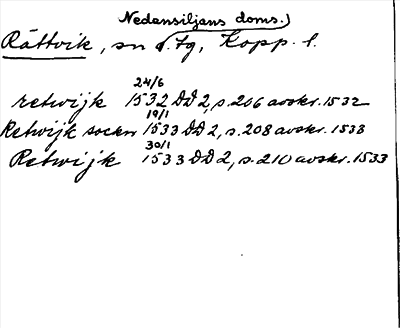 Nedansiljans doms.)
Rättvik, sn o. tg, Kopp. l.
24/6
retwijk 1532 DD 2, s. 206 avskr. 1532
19/1
Retwijk socken 1533 DD 2, s. 208 avskr. 1533
30/1
Retwijk 1533 DD 2, s. 210 avskr. 1533